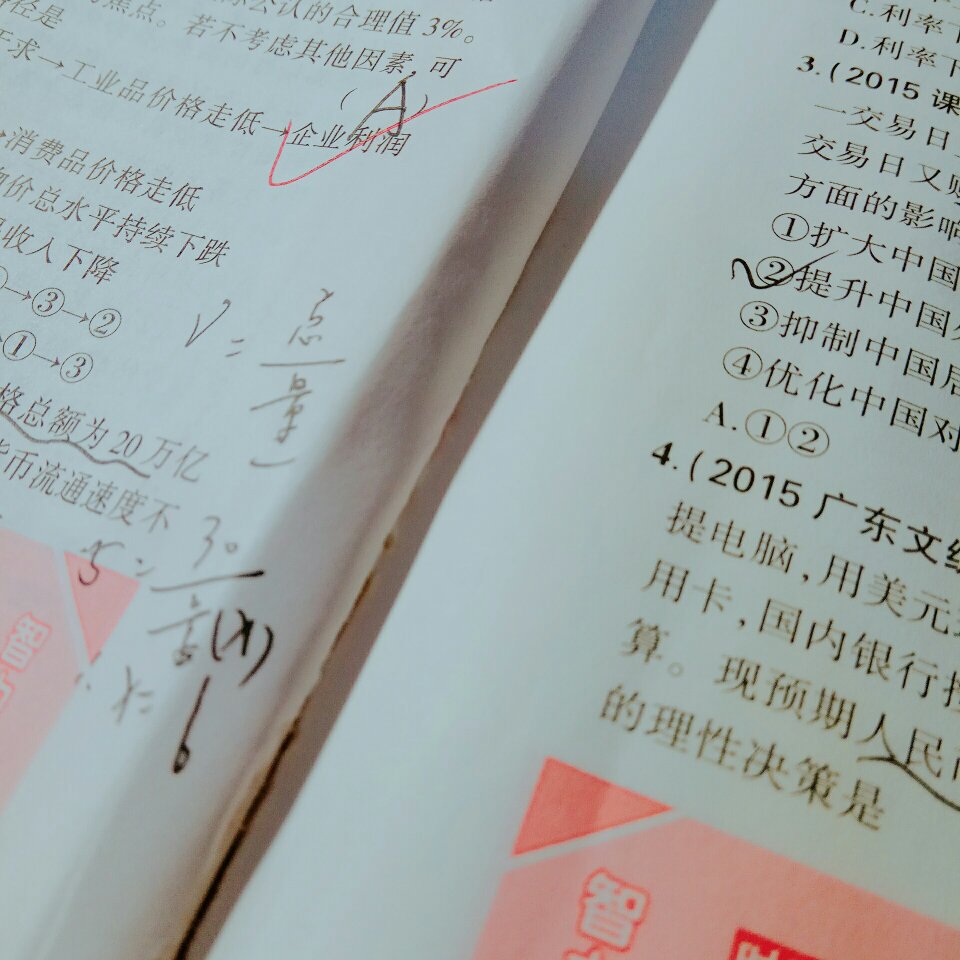 公认的合理值3%。
焦点。若不考虑其他因素,可
径是
(A)
求→工业品价格走低→企业利润
消费品价格走低
价总水平持续下跌
收入下降
→③→②
①→③
V=总/量
格总额为20万亿
币流通速度不
5=30/量(x)
x=6
智
C.利率下
D.利率下
3.(2015课
一交易日
交易日又
方面的影响
①扩大中国
②提升中国
③抑制中国居
④优化中国对
A.①②
4.(2015广东文综
提电脑,用美元
用卡,国内银行
算。现预期人民
的理性决策是
智